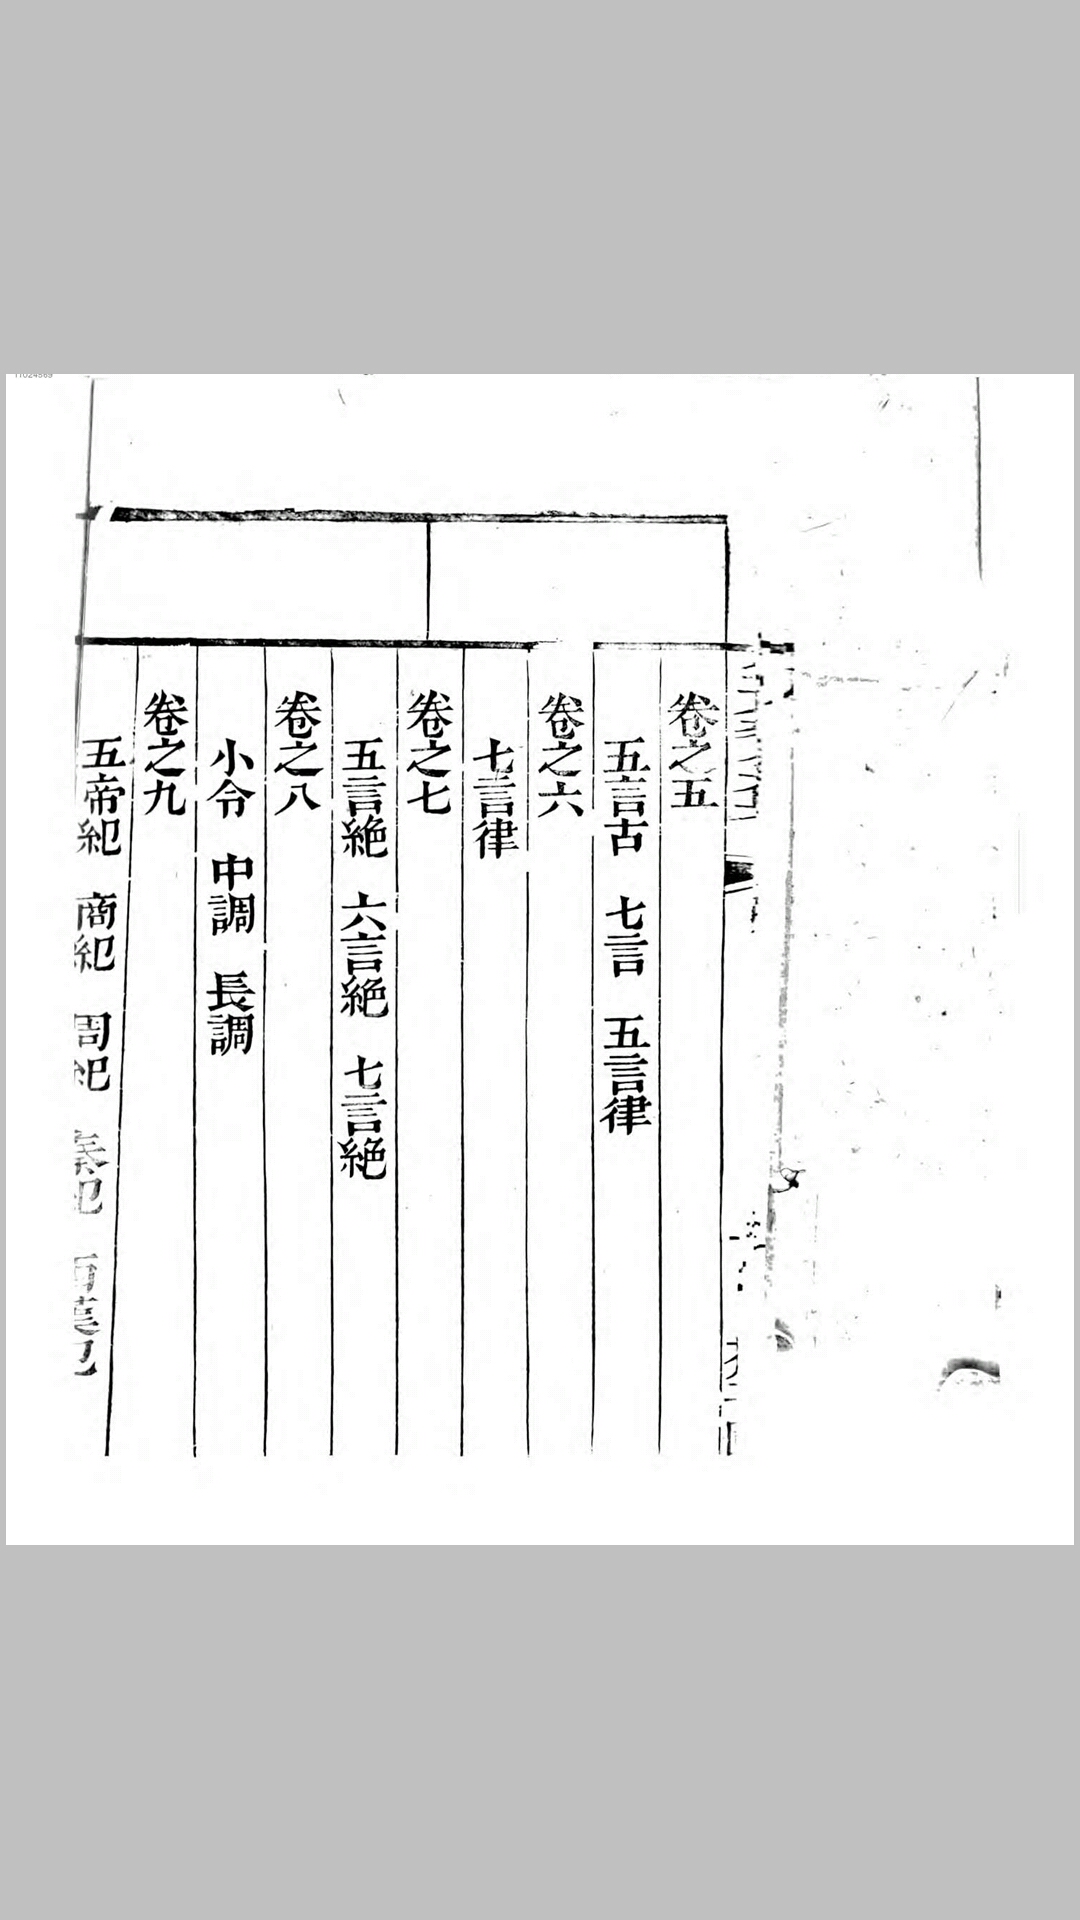 卷之五
五言古　七言　五言律
卷之六
七言律
卷之七
五言絶　六言絶　七言絶
卷之八
小令　中調　長調
卷之九
五帝紀　商紀　周紀　秦紀　西漢紀